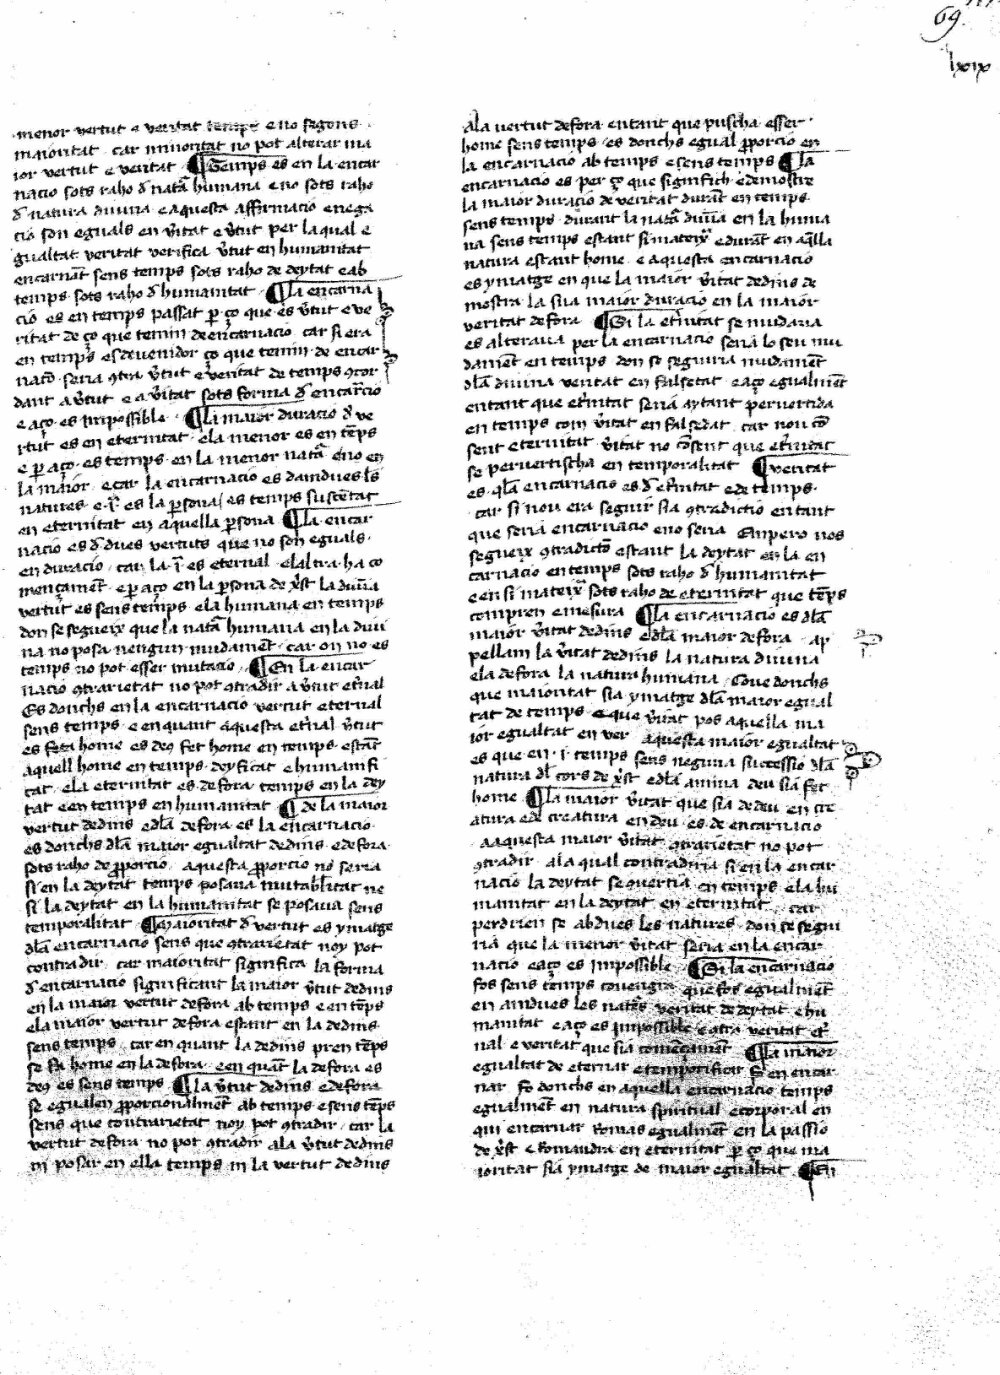 69
lxix
menor vertut e veritat temps e no segons
maioritat · car minoritat no pot alterar ma
ior vertut e veritat · ¶ Temps es en la encar
nacio sots raho d̄ natᵃ humana e no sots raho
d̄ natura diuina · e aquesta affirmacio e nega
cio son eguals en v̄itat e v̄tut per la qual e
gualtat veritat verifica v̄tut en humanitat
encarnāt sens temps sots raho de deytat e ab
temps · sots raho d̄ humanitat · ¶ La encarna
cio es en temps passat p̄ ço que es v̄tut e ve
ritat de ço que temim de encarnacio car si era
en temps esdeuenidor ço que temim de encar
nacō · seria ꝯtra v̄tut e v̄eritat de temps ꝯcor
dant a v̄tut e a v̄itat sots forma d̄ encarᵃcio
e aço es impossible · ¶ La maior duracio d̄ ve
rtut es en eternitat · e la menor es en tēps
e p̄ aço · es temps · en la menor natᵃ e no en
la maior · e car la encarnacio es damdues les
natures · e · iᵃ · es la p̄sona / es temps sustētat
en eternitat en aquella p̄sona · ¶ La encar
nacio es d̄ dues vertuts que no son eguals ·
en duracio · car la · iᵃ es eternal · e laltra · ha co
mençamēt · e p̄ aço en la p̄sona de x̄st la diuīa
vertut es sens temps · e la humana en temps
don se segueix que la natᵃ humana en la diui
na no posa nengun mudamēt · car on no es
temps no pot esser mutacio · ¶ En la encar
nacio ꝯtrarietat no pot ꝯtradir a v̄tut et̄nal
Es donchs en la encarnacio vertut eternal
sens temps · e en quant aquesta et̄nal v̄tut
es feta home es deꝰ fet home en temps · estāt
aquell home en temps · deyficat e humanifi
cat · e la eternitat es defora temps en la dey
tat e en temps en humanitat ¶ De la maior
vertut dedins e dl̄a defora · es la encarnacio ·
es donchs dl̄a maior egualtat dedins · e defora ·
sots raho de p̄porcio · aquesta p̄porcio no seria
si en la deytat temps posaua mutabl̄itat ne
si la deytat en la humanitat se posaua sens
temporalitat · ¶ Maioritat d̄ vertut es ymatge
dl̄a encarnacio sens que ꝯtrarietat noy pot
contradir · car maioritat significa la forma
d̄ encarnacio significant la maior v̄tut dedins
en la maior vertut defora ab temps · e en tēps
e la maior vertut defora estant en la dedins ·
sens temps · car en quant la dedins pren tēps
se fa home en la defora · e en quāt la defora es
deꝰ es sens temps · ¶ La v̄tut dedins e defora
se egualen p̄porcionalmēt ab temps · e sens tēps
sens que contrarietat noy pot ꝯtradir · car la
vertut defora no pot ꝯtradir a la v̄tut dedins
ni posar en ella temps ni la vertut dedins
A la vertut defora entant que puscha esser ·
home sens temps · es donchs egual p̄porcio en
la encarnacio ab temps e sens temps ¶ La
encarnacio es per ço que significh e demostre
la maior duracio de veritat durāt en temps ·
sens temps · durant la natᵃ diuīa en la huma
na sens temps estant si mateixᵃ e durāt en aq̄lla
natura estant home · e aquesta encarnacio
es ymatge en que la maior v̄itat dedins de
mostra · la sua maior duracio en la maior
veritat defora · ¶ Si la et̄nitat se mudaua
es alteraua per la encarnacio seria lo seu mu
dament en temps · don se seguiria mudamēt
dl̄a diuina veritat en falsetat · e aço egualmēt
entant que et̄nitat seria aytant peruertida
en temps com v̄itat en falsedat · car nou cō
sent eternitat · v̄itat no cōsent que et̄nitat
se peruertischa en temporalitat · ¶ Veritat
es · ql̄a encarnacio es d̄ et̄nitat e de temps ·
car si nou era seguir sia ꝯtradictio en tant
que seria encarnacio e no seria · Empero nos
segueix ꝯtradictō estant la deytat en la en
carnacio en temps · sots raho d̄ humanitat
e en si mateixᵃ sots raho de eternitat que tēps
conpren e mesura · ¶ La encarnacio es dl̄a
maior v̄itat dedins e dl̄a maior defora · Ap
pellam la v̄itat dedins la natura diuina
e la defora la natura humana · Coue donchs
que maioritat sia ymatge dl̄a maior egual
tat de temps · e que v̄itat pos aquella ma
ior egualtat en ver · aquesta maior egualtat
es que en · i · temps sens neguna successio dl̄a
natura dl̄ cors de x̄st e dl̄a anima · deu sia fet
home · ¶ La maior v̄itat que sia de deu en cre
atura e de creatura en deu · es de encarnacio
a aquesta maior v̄itat ꝯtrarietat no pot
ꝯtradir · a la qual contradiria si en la encar
nacio la deytat se ꝯuertia en temps e la hu
manitat en la deytat en eternitat · car
perdrien se abdues les natures · don se segui
ria que la menor v̄itat seria en la encar
nacio e aço es impossible · ¶ Si la encarnacio
fos sens temps couengra que fos egualmēt
en amdues les natᵉs veritat de deytat e hu
manitat · e aço es impossible e ꝯtra veritat et̄
nal e veritat que sia començament · ¶ La maior
egualtat de eternar e temporificar fo en encar
nar · Fo donchs en aquella encarnacio temps
egualmēt en natura spiritual e corporal en
qui encarnar Romas egualment en la passio
de x̄st · e Romandra en eternitat p̄ ço que ma
ioritat sia ymatge de maior egualtat · ¶ En